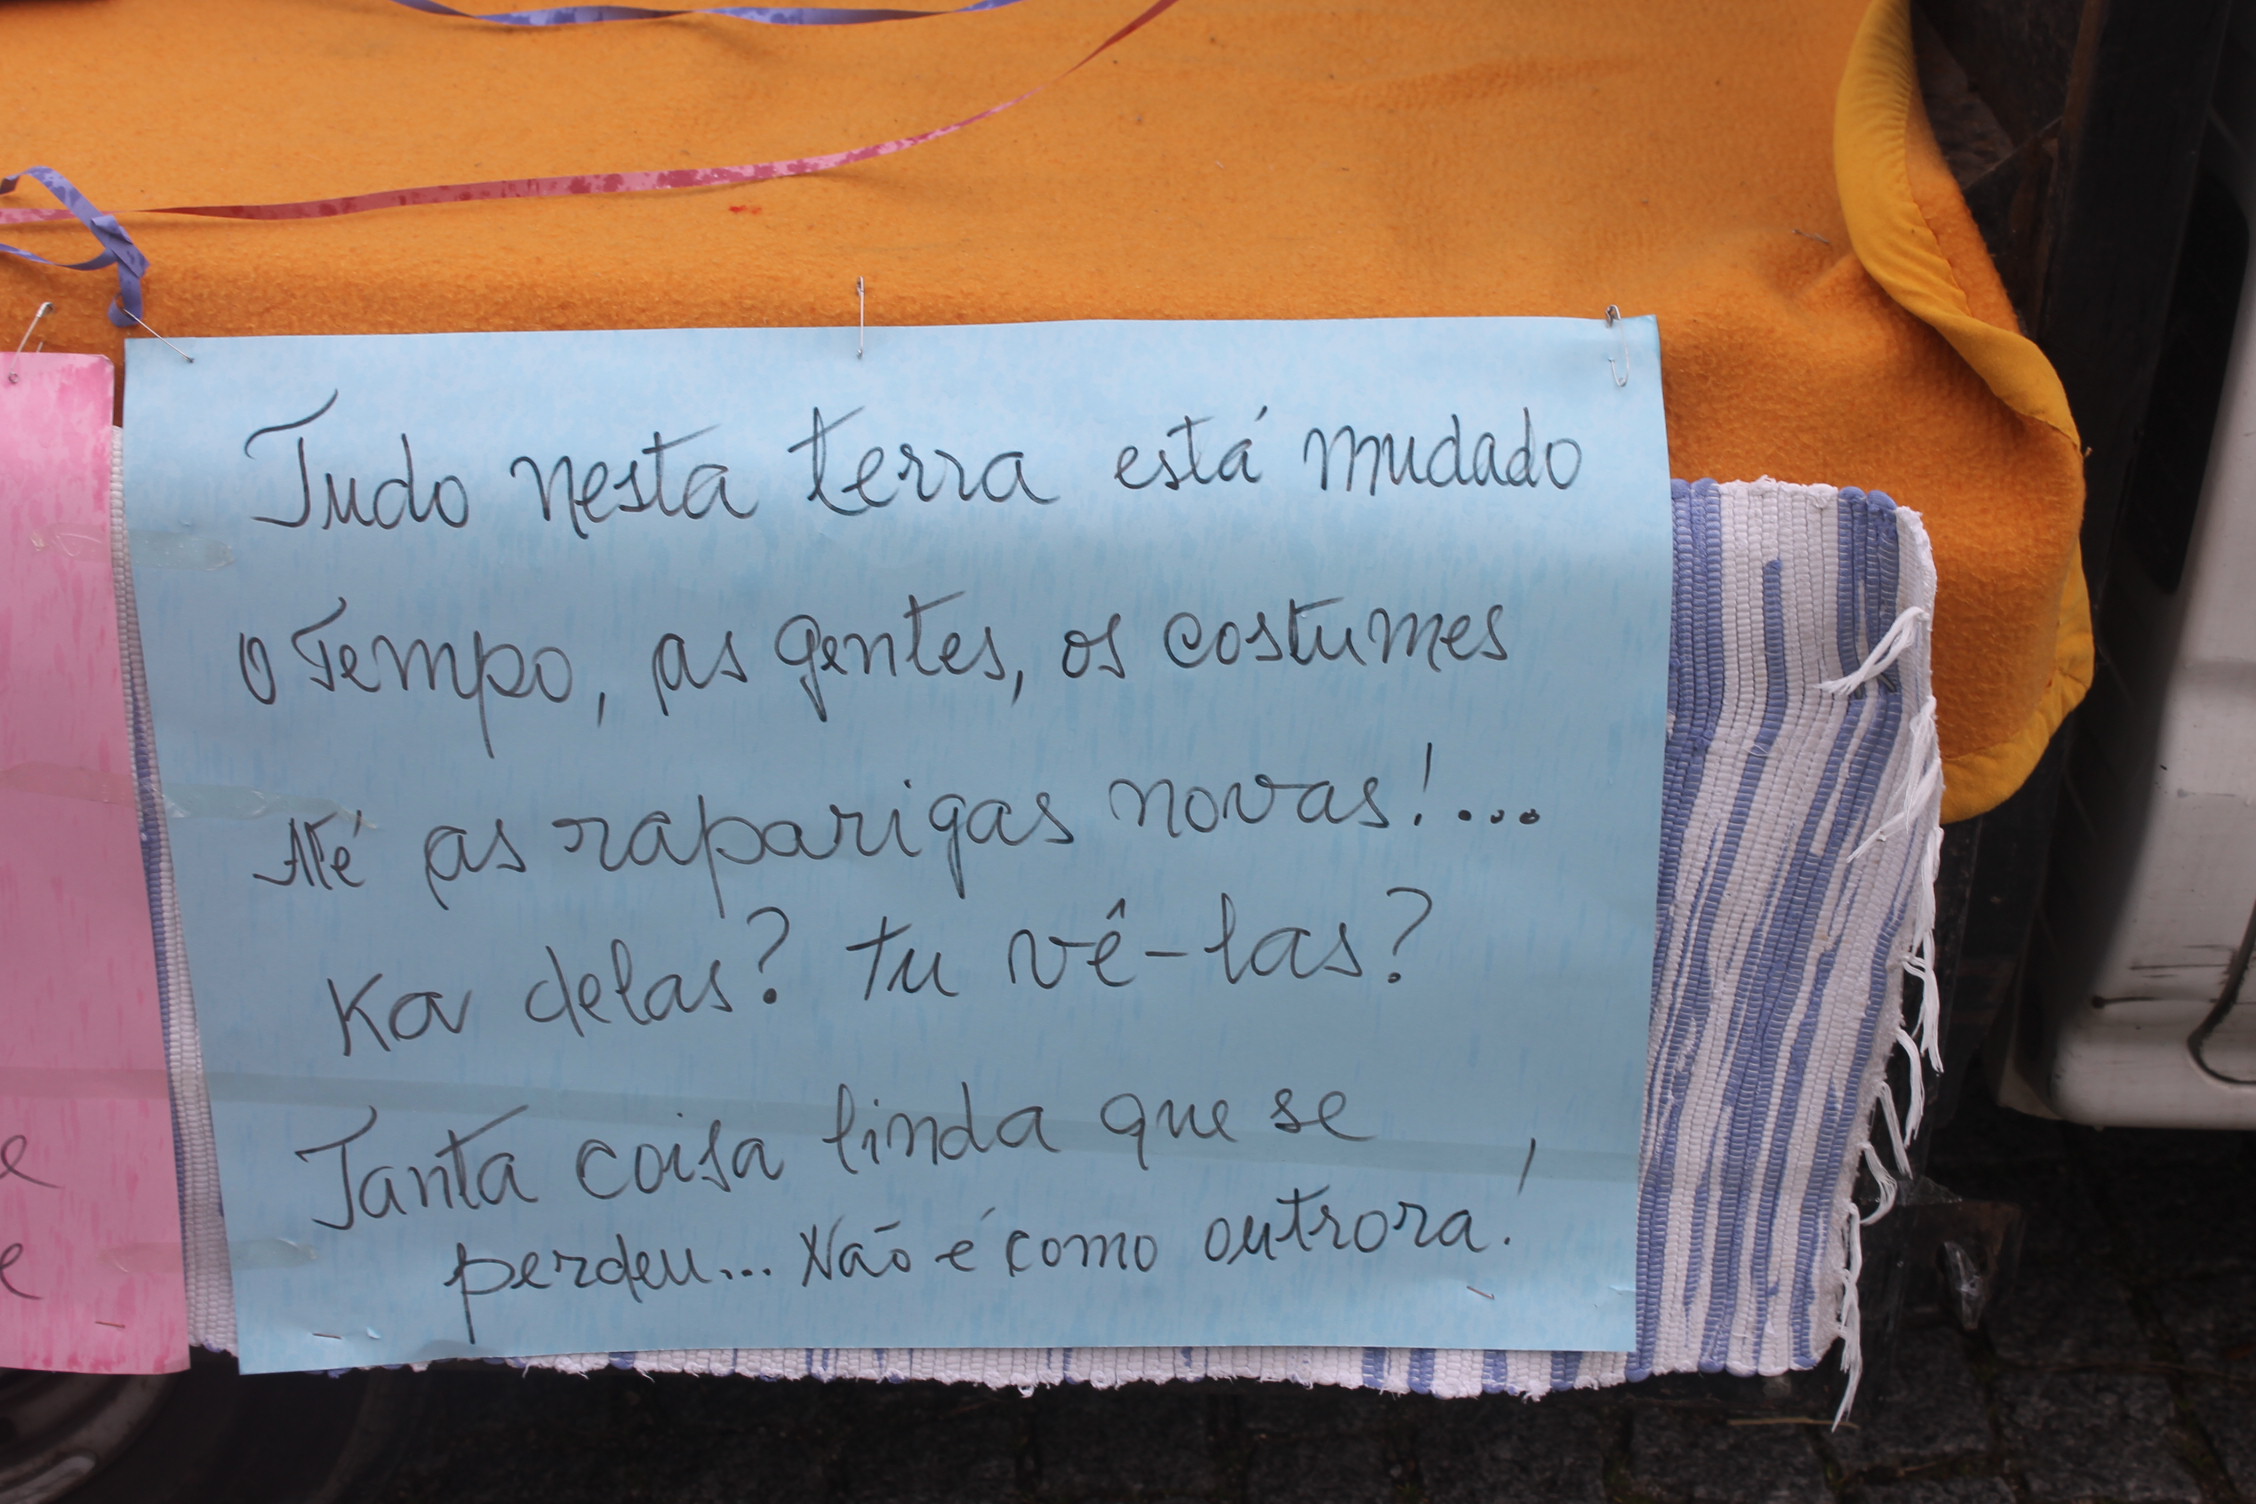 Tudo nesta terra está mudado
o Tempo, as gentes, os costumes
Até as raparigas novas!...
Ka delas? Tu vê-las?
Tanta coisa linda que se
perdeu... Não é como outrora!
e
e